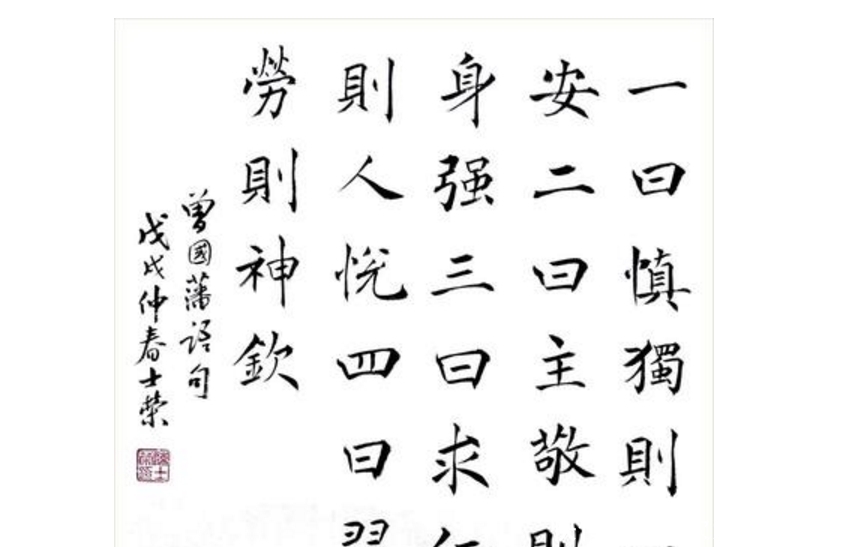 一曰慎獨則
安二曰主敬則
身强三曰求
則人悅四曰習
勞則神欽
曾國藩語句
戊戌仲春士榮